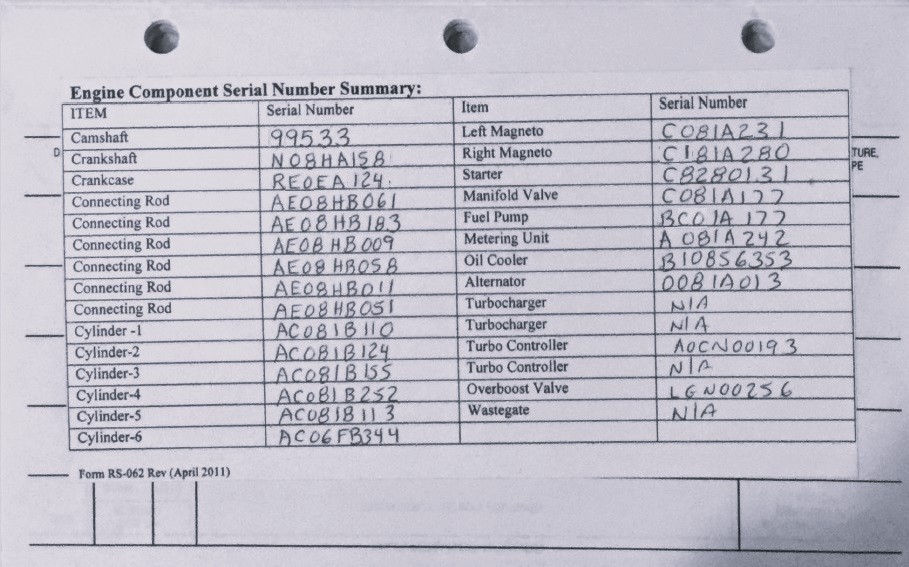 Engine Component Serial Number Summary:
ITEM Serial Number Item Serial Number
Camshaft 99533 Left Magneto C081A231
Crankshaft N08HA158 Right Magneto C181A280
Crankcase REOEA124. Starter CB280131
Connecting Rod AE08HB061 Manifold Valve C081A177
Connecting Rod AE08HB183 Fuel Pump BC01A177
Connecting Rod AE08HB009 Metering Unit A081A242
Connecting Rod AE08HB058 Oil Cooler B10856353
Connecting Rod AE08HB011 Alternator 0081A013
Connecting Rod AE08HB051 Turbocharger N/A
Cylinder -1 AC081B110 Turbocharger N/A
Cylinder-2 AC081B124 Turbo Controller A0CN00193
Cylinder-3 AC081B155 Turbo Controller N/A
Cylinder-4 AC081B252 Overboost Valve LGN00256
Cylinder-5 AC081B113 Wastegate N/A
Cylinder-6 AC06FB344
Form RS-062 Rev (April 2011)
D
TURE,
PE